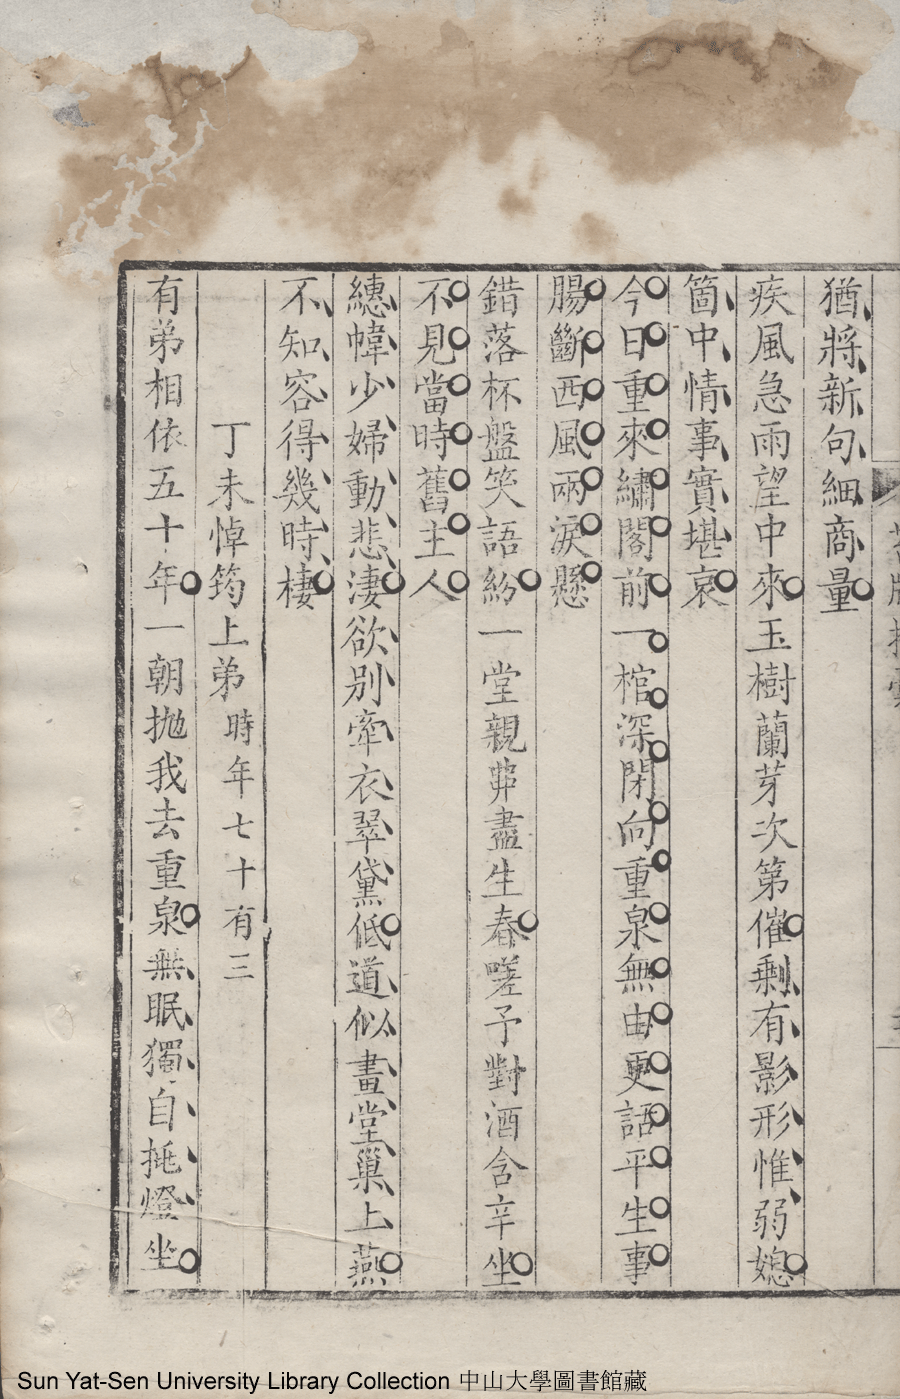 猶將新句細商量
疾風急雨望中來玉樹蘭芽次第催剩有影形惟弱媳
箇中情事實堪哀
今日重來繡閣前一棺深閉向重泉無由更話平生事
腸斷西風兩淚懸
錯落杯盤笑語紛一堂親串盡生春嗟予對酒含辛坐
不見當時舊主人
繐幃少婦動悲淒欲别牽衣翠黛低道似畫堂巢上燕
不知容得幾時棲
丁未悼筠上弟時年七十有三
有弟相依五十年一朝拋我去重泉無眠獨自挑燈坐
Sun Yat-Sen University Library Collection 中山大學圖書館藏